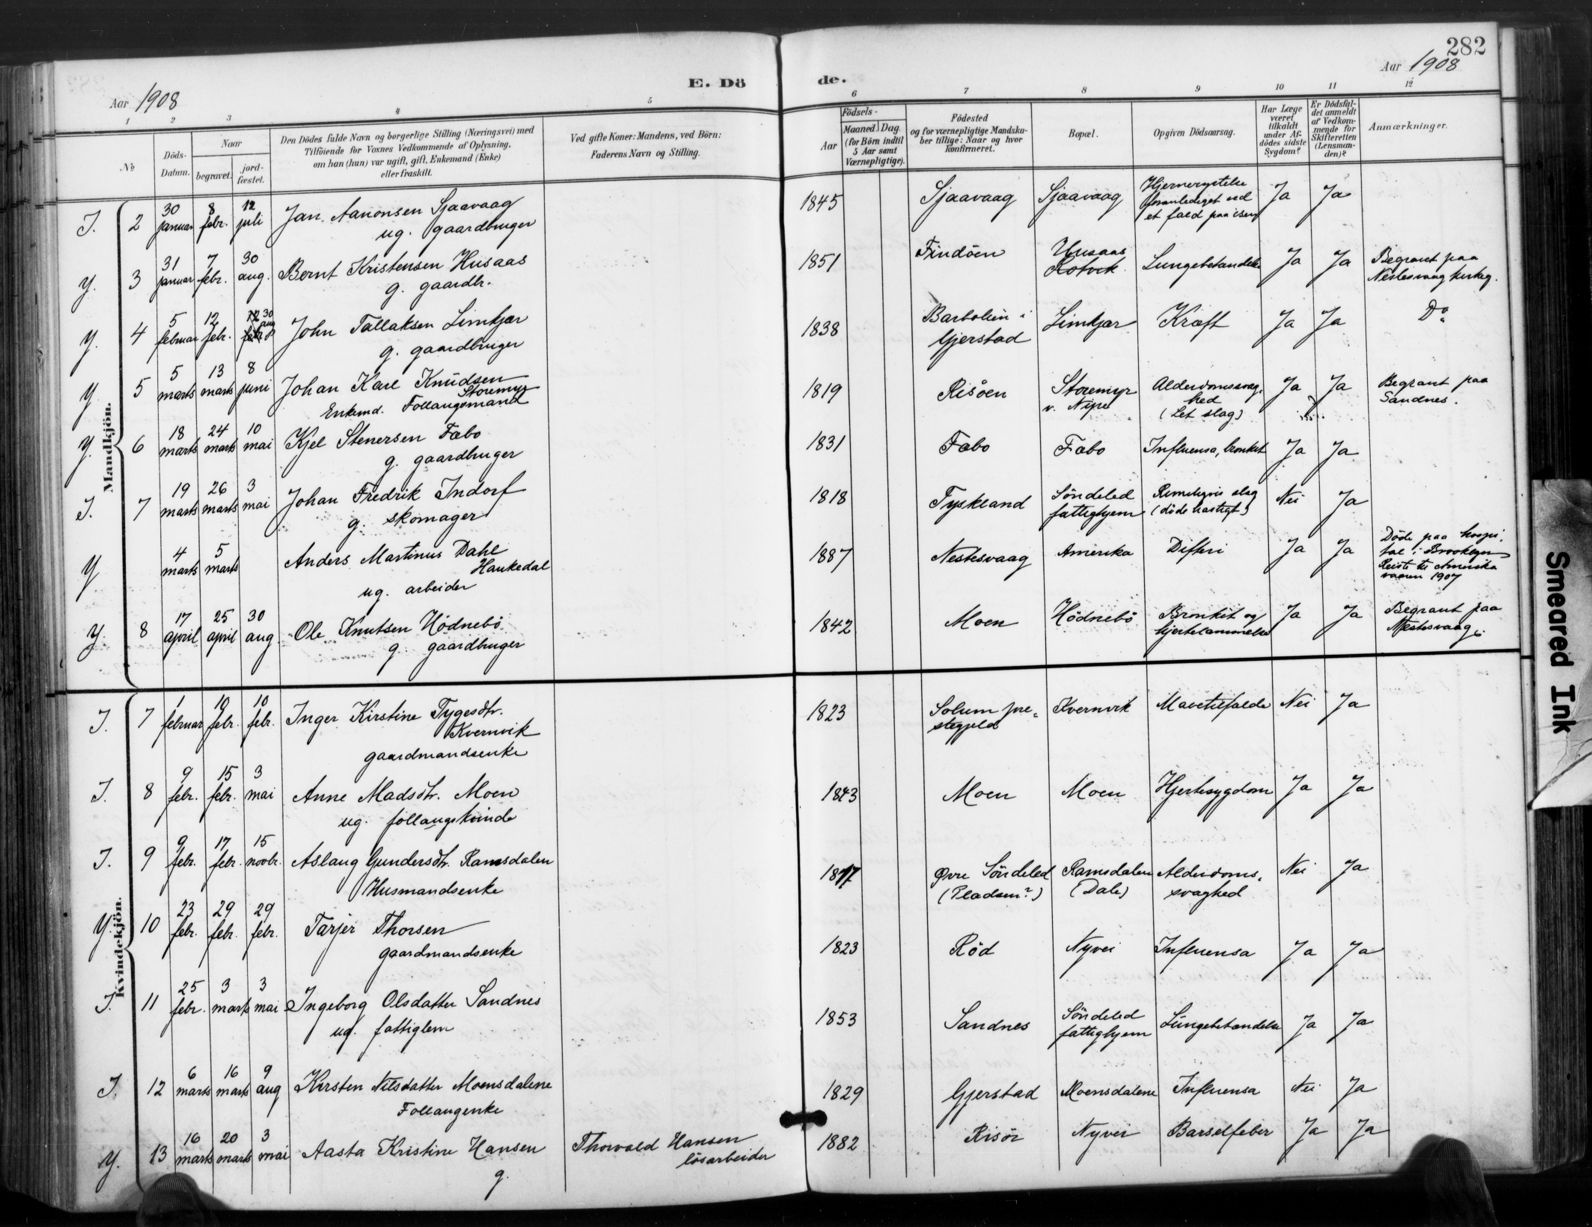 282
Aar 1908
E. Dö
de.
Aar 1908
1 2 3 4 5 6 7 8 9 10 11 12
No
Döds-Datum.
Naar
begravet.
jord-fæstet.
Den Dödes fulde Navn og borgerlige Stilling (Næringsvei) med
Tilföiende for Voxnes Vedkommende af Oplysning,
om han (hun) var ugift, gift, Enkemand (Enke)
eller fraskilt.
Ved gifte Koner: Mandens, ved Börn:
Faderens Navn og Stilling.
Födsels-
Aar
Maaned Dag
(for Börn indtil
5 Aar samt
Værnepligtige).
Födested
og for værnepligtige Mandska-
ber tillige: Naar og hvor
konfirmeret.
Bopæl.
Opgiven Dödsaarsag.
Har Læge
været
tilkaldt
under Af-
dödes sidste
Sygdom?
Er Dödsfal-
det anmeldt
af Vedkom-
mende for
Skifteretten
(Lensman-
den)?
Anmærkninger.
Mandkjön.
I. 2 30 januar 8 febr. 12 juli Jan Aanonsen Sjaavaag 1845 Sjaavaag Sjaavaag Hjernerystelse Ja Ja
ug. gaardbruger foranlediget ved
et fald paa isen
Y. 3 31 januar 7 febr. 30 aug. Bernt Kristensen Husaas 1851 Findöen Husaas Lungebetændelse Ja Ja Begravet paa
g. gaardbr. Rotvik Nestesvaag kirkeg.
Y. 4 5 februar 12 febr. 30 aug John Tallaksen Limkjær 1838 Barbolien i Limkjær Kræft Ja Ja Do
g. gaardbruger Gjerstad
Y 5 5 marts 13 marts 8 juni Johan Karl Knudsen 1819 Risöen Storemyr Alderdomssvag- Ja Ja Begravet paa
Storemyr v. Nipe hed Sandnes.
Enkemd. Follaugsmand (Let slag)
Y. 6 18 marts 24 marts 10 mai Kjel Stenersen Fæbo 1831 Fæbo Fæbo Influensa, bronkit Ja Ja
g. gaardbruger
I. 7 19 marts 26 marts 3 mai Johan Fredrik Indorf 1818 Tyskland Söndeled Rimeligvis slag Nei Ja
g. skomager fattighjem (döde hastigt)
Y 4 marts 5 marts Anders Martinus Dahl 1887 Nestesvaag Amerika Difteri Ja Ja Döde paa hospi-
Haukedal tal i Brooklyn
ug. arbeider Reiste til Amerika
vaaren 1907
Y. 8 17 april 25 april 30 aug Ole Knutsen Hödnebö 1842 Moen Hödnebö Bronkit og Ja Ja Begravt paa
g. gaardbruger hjertelammelse Nestesvaag.
Kvindekjön.
I. 7 1 februar 10 febr. 10 febr. Inger Kirstine Tygesdtr. 1823 Solum pre- Kvernvik Mavetilfælde Nei Ja
Kvernvik stegjeld
gaardmandsenke
I. 8 9 febr. 15 febr. 3 mai Anne Madsdtr. Moen 1843 Moen Moen Hjertesygdom Ja Ja
ug. follaugskvinde
I. 9 9 febr. 17 febr. 15 novbr. Aslaug Gundersdtr. Ramsdalen 1817 Øvre Söndeled Ramsdalen Alderdoms- Nei Ja
Husmandsenke (Pladsen?) (Dale) svaghed
Y. 10 23 febr. 29 febr. 29 febr. Tarjer Thorsen 1823 Röd Nyvei Influensa Ja Ja
gaardmandsenke
I. 11 25 febr. 3 marts 3 mai Ingeborg Olsdatter Sandnes 1853 Sandnes Söndeled Lungebetændelse Ja Ja
ug. fattiglem fattighjem
I. 12 6 marts 16 marts 9 aug Kirsten Nilsdatter Moensdalene 1829 Gjerstad Moensdalene Influensa Nei Ja
Follaugenke
Y. 13 16 marts 20 marts 3 mai Aasta Kristine Hansen Thorvald Hansen 1882 Risör Nyvei Barselfeber Ja Ja
g. lösarbeider
Smeared Ink